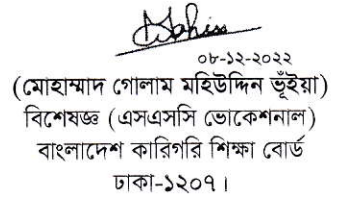 ০৮-১২-২০২২
(মোহাম্মাদ গোলাম মহিউদ্দিন ভূঁইয়া)
বিশেষজ্ঞ (এসএসসি ভোকেশনাল)
বাংলাদেশ কারিগরি শিক্ষা বোর্ড
ঢাকা-১২০৭।